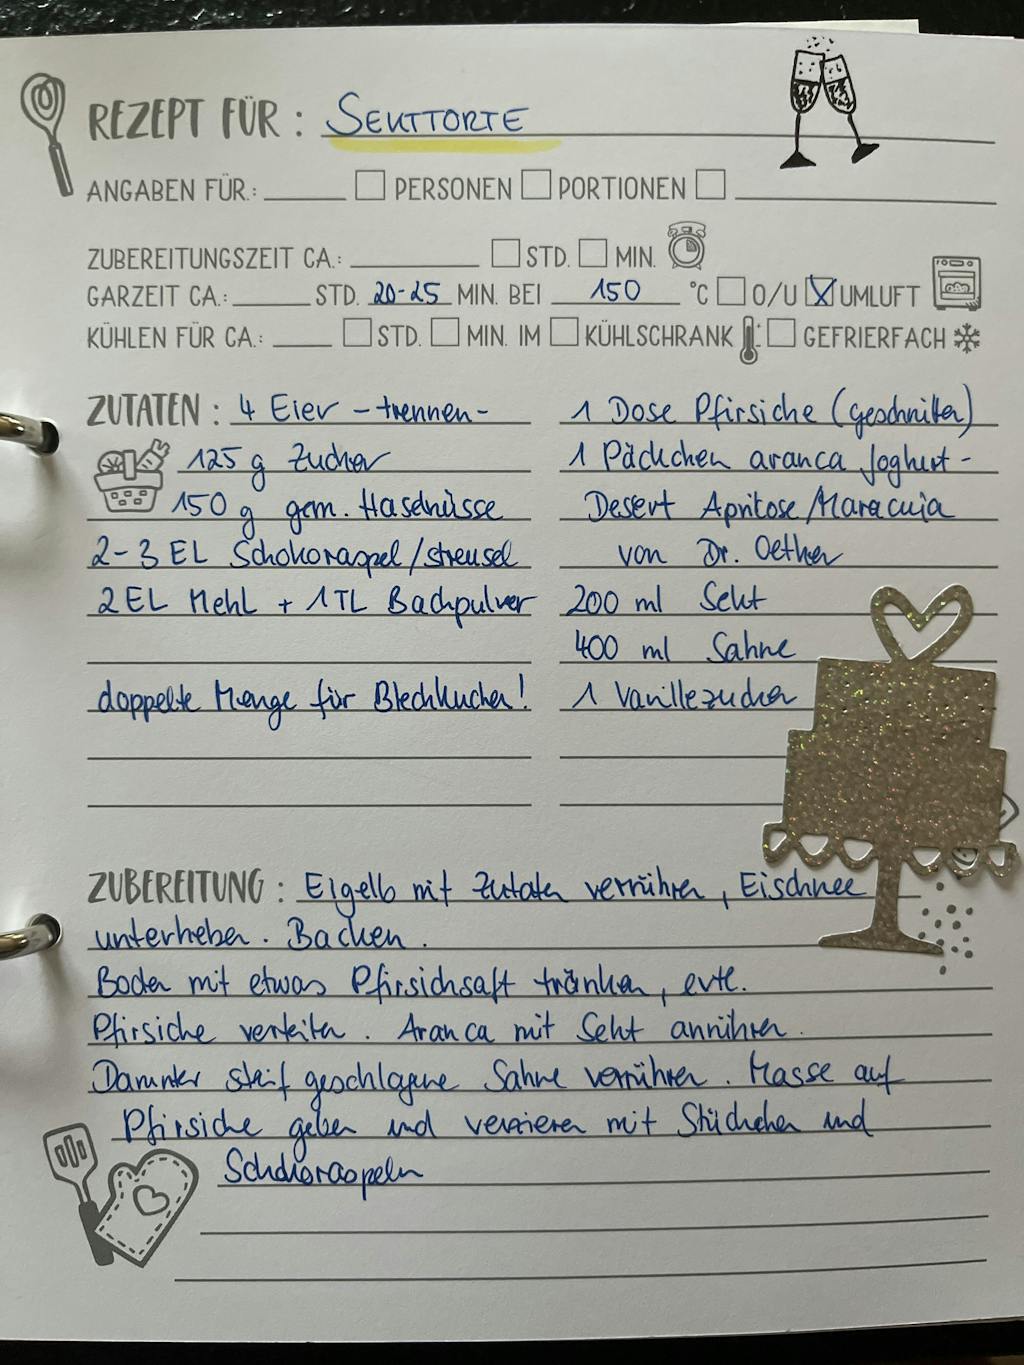 REZEPT FÜR : SEKTTORTE
ANGABEN FÜR.: ____ ☐ PERSONEN ☐ PORTIONEN ☐ ____
ZUBEREITUNGSZEIT CA.: ____ ☐ STD. ☐ MIN.
GARZEIT CA.: ____ STD. 20-25 MIN. BEI 150 °C ☐ O/U ☒ UMLUFT
KÜHLEN FÜR CA.: ____ ☐ STD. ☐ MIN. IM ☐ KÜHLSCHRANK ☐ GEFRIERFACH
ZUTATEN : 4 Eier - trennen -
125 g Zucker
150 g gem. Haselnüsse
2-3 EL Schokoraspel/streusel
2 EL Mehl + 1 TL Backpulver
doppelte Menge für Blechkuchen!
1 Dose Pfirsiche (geschnitten)
1 Päckchen aranca Joghurt-
Desert Aprikose/Maracuia
von Dr. Oetker
200 ml Sekt
400 ml Sahne
1 Vanillezucker
ZUBEREITUNG : Eigelb mit Zutaten verrühren, Eischnee
unterheben. Backen.
Boden mit etwas Pfirsichsaft tränken, evtl.
Pfirsiche verteilen. Aranca mit Sekt anrühren.
Darunter steif geschlagene Sahne verrühren. Masse auf
Pfirsiche geben und verzieren mit Stückchen und
Schokoraspeln